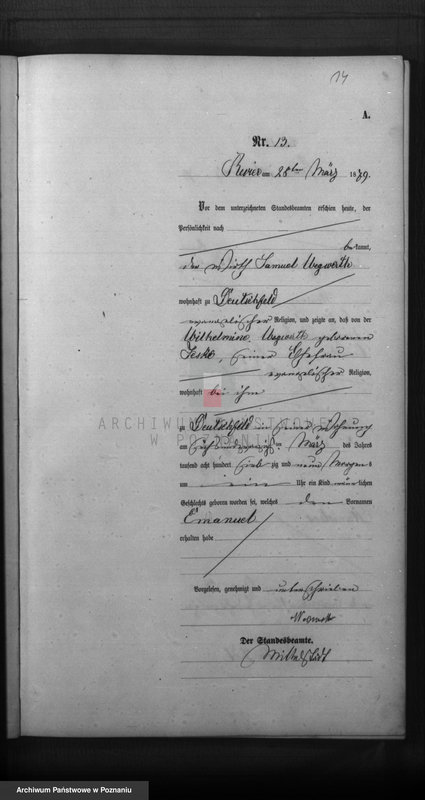 14
A.
Nr. 13.
am 28ten März 1879.
Vor dem unterzeichneten Standesbeamten erschien heute, der
Persönlichkeit nach
bekannt,
der Wirth Samuel Wegwerth
wohnhaft zu Deutschfeld
evangelischer Religion, und zeigte an, daß von der
Wilhelmine Wegwerth geborenen
Jeske, seiner Ehefrau
evangelischer Religion,
wohnhaft bei ihm
ARCHIWUM PAŃSTWOWE
W POZNANIU
zu Deutschfeld in seiner Wohnung
am März des Jahres
tausend acht hundert siebzig und neun Morgens
um ein Uhr ein Kind männlichen
Geschlechts geboren worden sei, welches den Vornamen
Emanuel
erhalten habe
Vorgelesen, genehmigt und unterschrieben
Wegwerth
Der Standesbeamte.
Mittelstädt
Archiwum Państwowe w Poznaniu